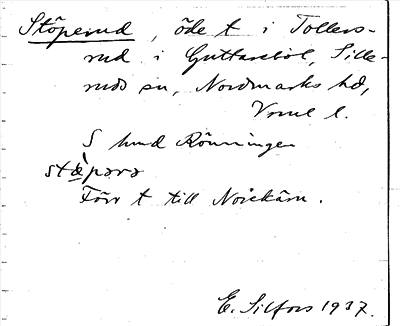 Stöperud, öde t i Tollers-
rud i Guttarebol, Sille-
ruds sn, Nordmarks hd,
Vrml l.
S hmd Rönningen
stæpərə
Förr t till
E. Silfors 1937.